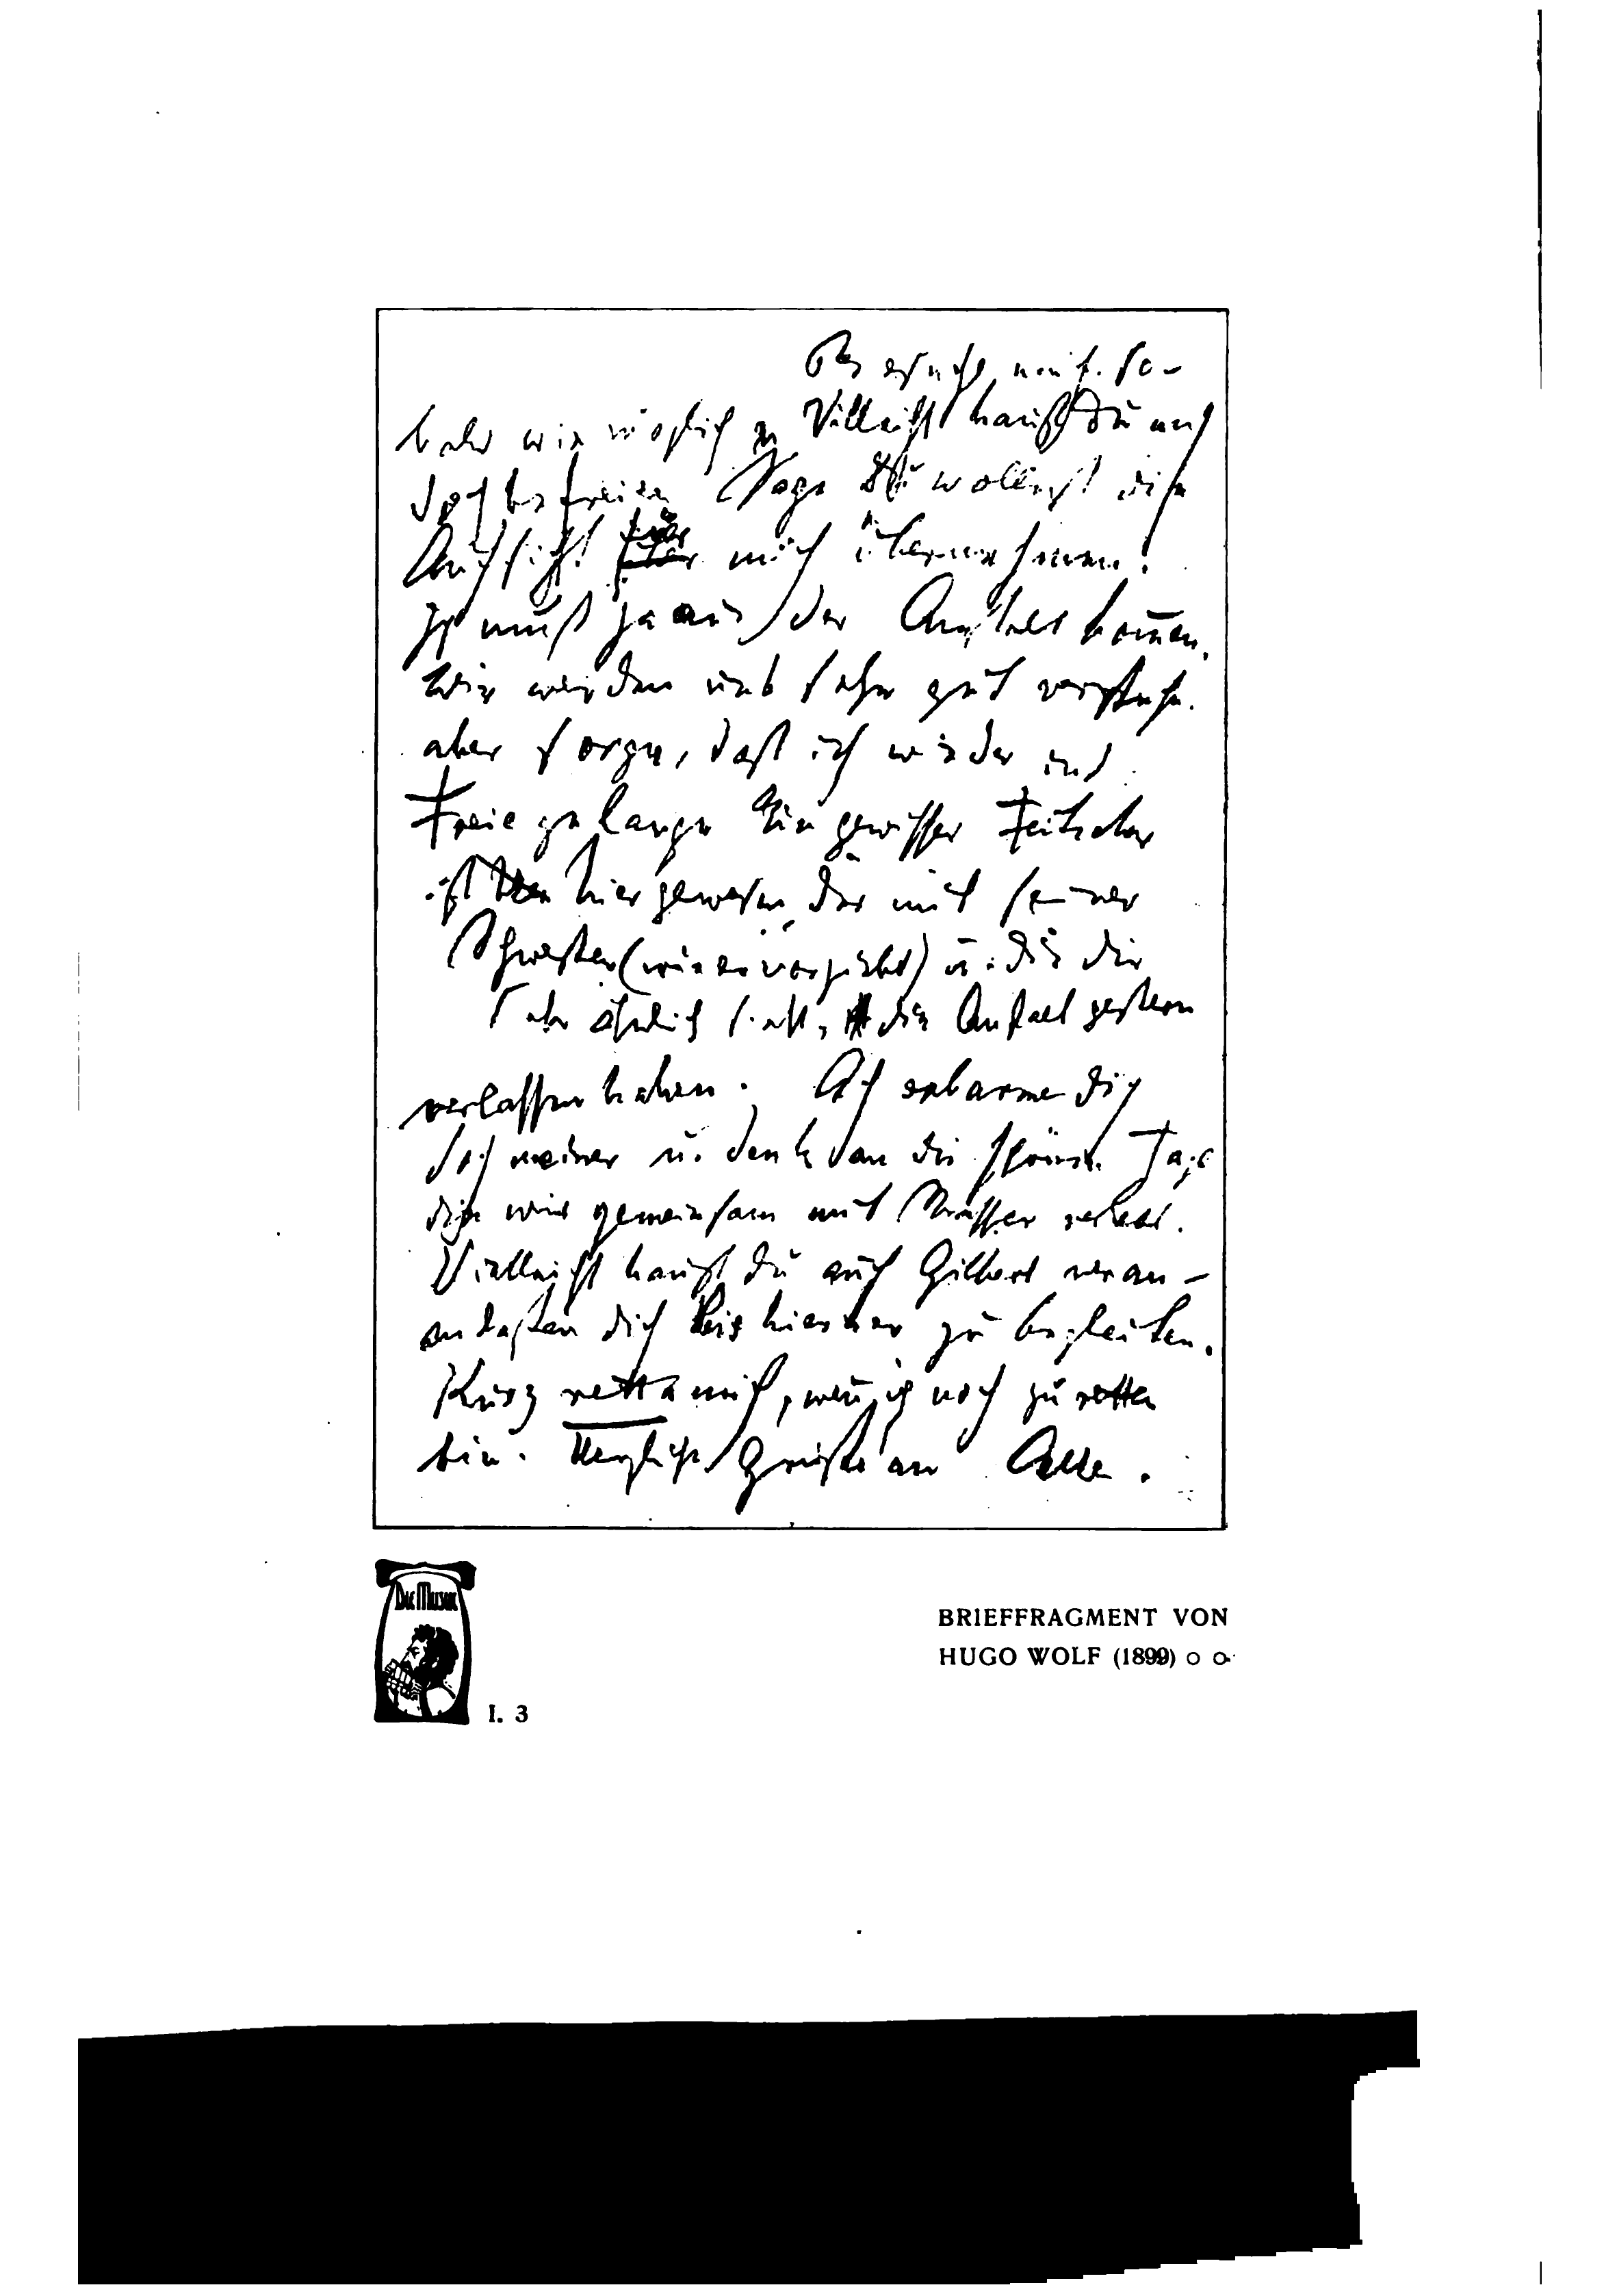 Besuche mich so-
bald wie möglich Vielleicht kannst Du mich
doch befreien Sage Du wollest die
Aufsicht über mich übernehmen!
Ich muß ja aus der Anstalt kom̄en.
Wir werden uns sehr gut verstehn.
aber sorge, daß ich wieder ins
Freie gelange Ein gewisser
ist hier gewesen der mit seiner
Schwester (wie er vorgiebt) u. die dir
sehr ähnlich sieht, die Anstalt gestern
verlassen haben. Ach erbarme dich
doch meiner u. denk an die schönen Tage
die wir gemeinsam mit verlebt.
Vielleicht kannst du auch Gilbert veran-
laßen dich bis hierher zu begleiten.
Kurz rette mich, wen̄ ich noch zu retten
bin. Herzliche Grüße an Alle.
DIE MUSIK
I. 3
BRIEFFRAGMENT VON
HUGO WOLF (1899)